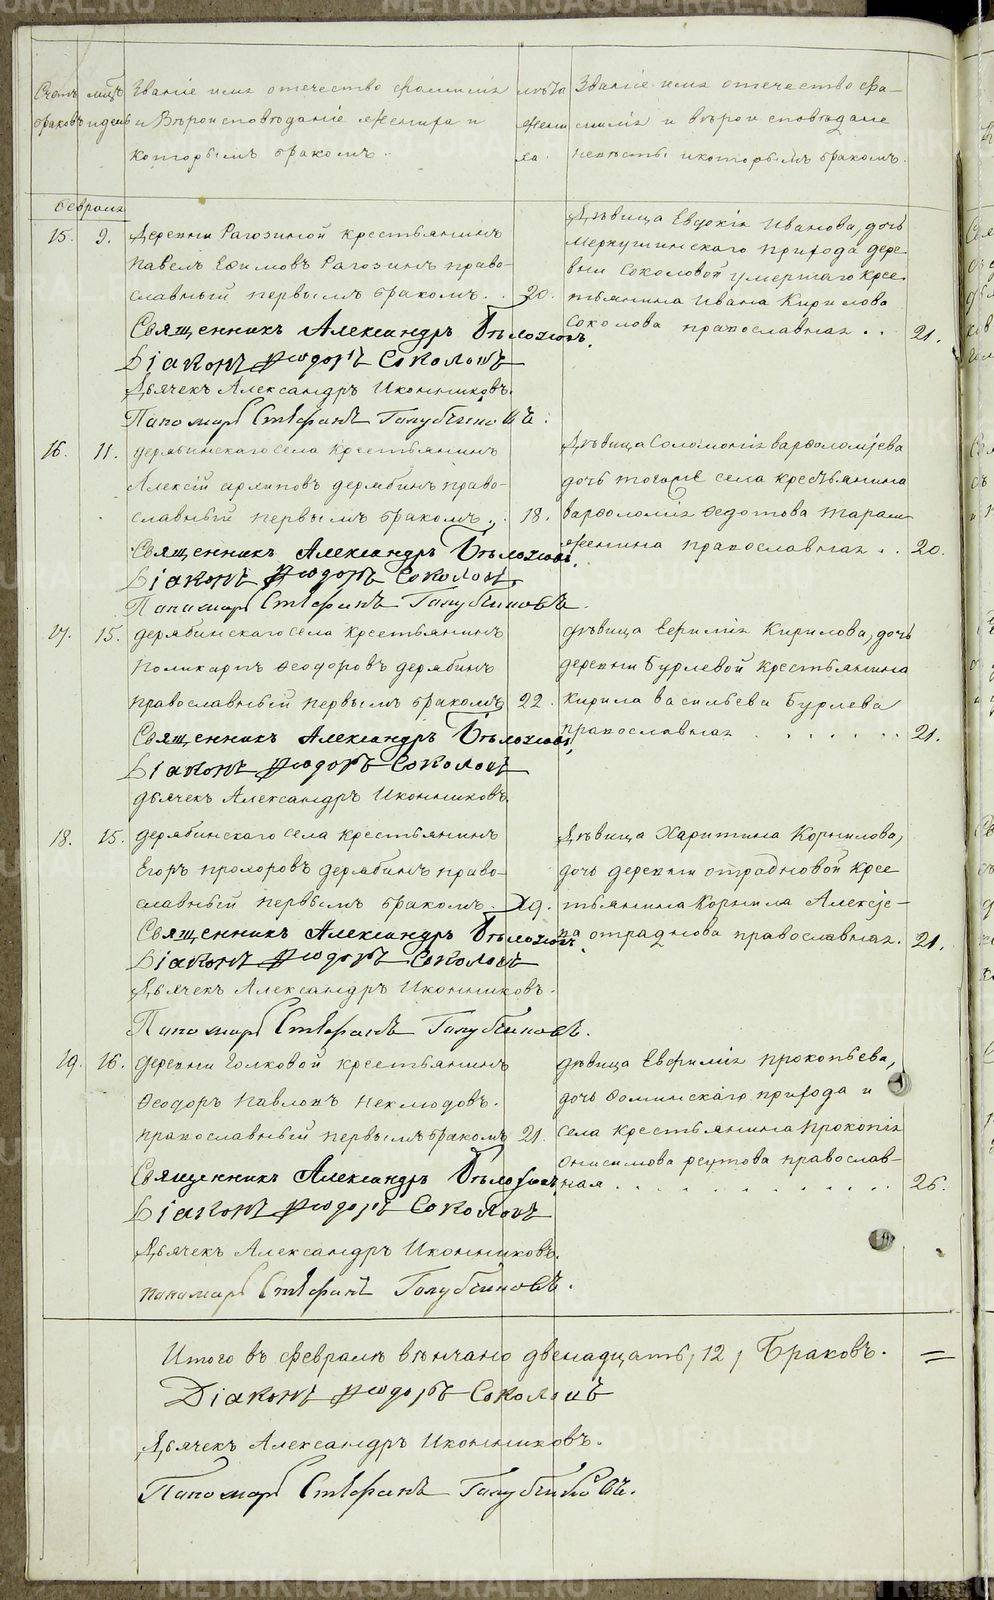 METRIKI.GASO-URAL.RU
Счетъ
браковъ
мѣсъ
и день
Званіе имя отечество фамилія
и Вѣроисповѣданіе жениха и
которымъ бракомъ.
лѣта
жени
ха.
Званіе имя отечество фа-
милія и вѣроисповѣдане
невѣсты и которымъ бракомъ.
Февраля
15. 9. Деревни Рагозиной крестьянинъ
Павелъ Ефимовъ Рагозинъ право-
славный первымъ бракомъ. . 20.
Священникъ Александръ
Діаконъ Ѳеодоръ Соколовъ
Дьячекъ Александръ Иконниковъ.
Пономарь Стефанъ Голубчиковъ.
Дѣвица Евдокія Иванова, дочь
Меркушинскаго прихода дере-
вни Соколовой умершаго крес-
тьянина Ивана Кирилова
Соколова православная . . 21.
16. 11. дерябинскаго села крестьянинъ
Алексій архиповъ дерябинъ право-
славный первымъ бракомъ. . 18.
Священникъ Александръ
Діаконъ Ѳеодоръ Соколовъ
Пономарь Стефанъ Голубчиковъ.
Дѣвица Соломонія варѳоломѣева
дочь тогоже села крестьянина
варѳоломія ѳедотова
православная . . 20.
17. 15. дерябинскаго села крестьянинъ
Поликарпъ Ѳеодоровъ дерябинъ
православный первымъ бракомъ 22.
Священникъ Александръ
Діаконъ Ѳеодоръ Соколовъ
дьячекъ Александръ Иконниковъ.
дѣвица Кирилова, дочь
деревни Бурлевой крестьянина
Кирила васильева Бурлева
православная . . . . . . . 21.
18. 15. дерябинскаго села крестьянинъ
Егоръ прохоровъ дерябинъ право-
славный первымъ бракомъ. 19.
Священникъ Александръ
Діаконъ Ѳеодоръ Соколовъ
Дьячекъ Александръ Иконниковъ.
Пономарь Стефанъ Голубчиковъ.
Дѣвица Харитина Корнилова,
дочь деревни отрадновой крес
тьянина Корнила Алексѣе-
ва отраднова православная. 21.
19. 16. деревни Голковой крестьянинъ
Ѳеодоръ Павловъ Неклюдовъ.
православный первымъ бракомъ 21.
Священникъ Александръ
Діаконъ Ѳеодоръ Соколовъ
Дьячекъ Александръ Иконниковъ.
пономарь Стефанъ Голубчиковъ.
дѣвица Евфимія прокопьева,
дочь Ѳоминскаго прихода и
села крестьянина Прокопія
Онисимова реутова православ-
ная . . . . . . . . . . 26.
Итого въ февралѣ вѣнчано двенадцать, 12, Браковъ.
Діаконъ Ѳеодоръ Соколовъ
Дьячекъ Александръ Иконниковъ.
Пономарь Стефанъ Голубчиковъ.
METRIKI.GASO-URAL.RU